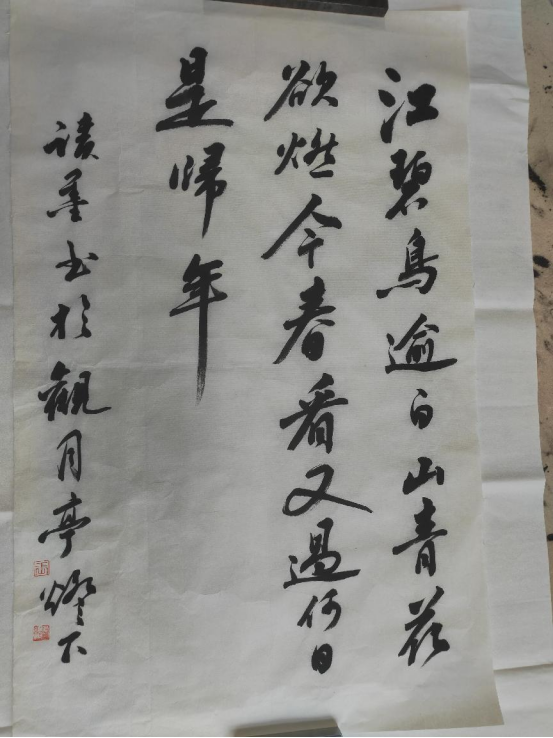 江碧鳥逾白山青花
欲燃今春看又過何日
是歸年
读墨书於觀月亭燈下